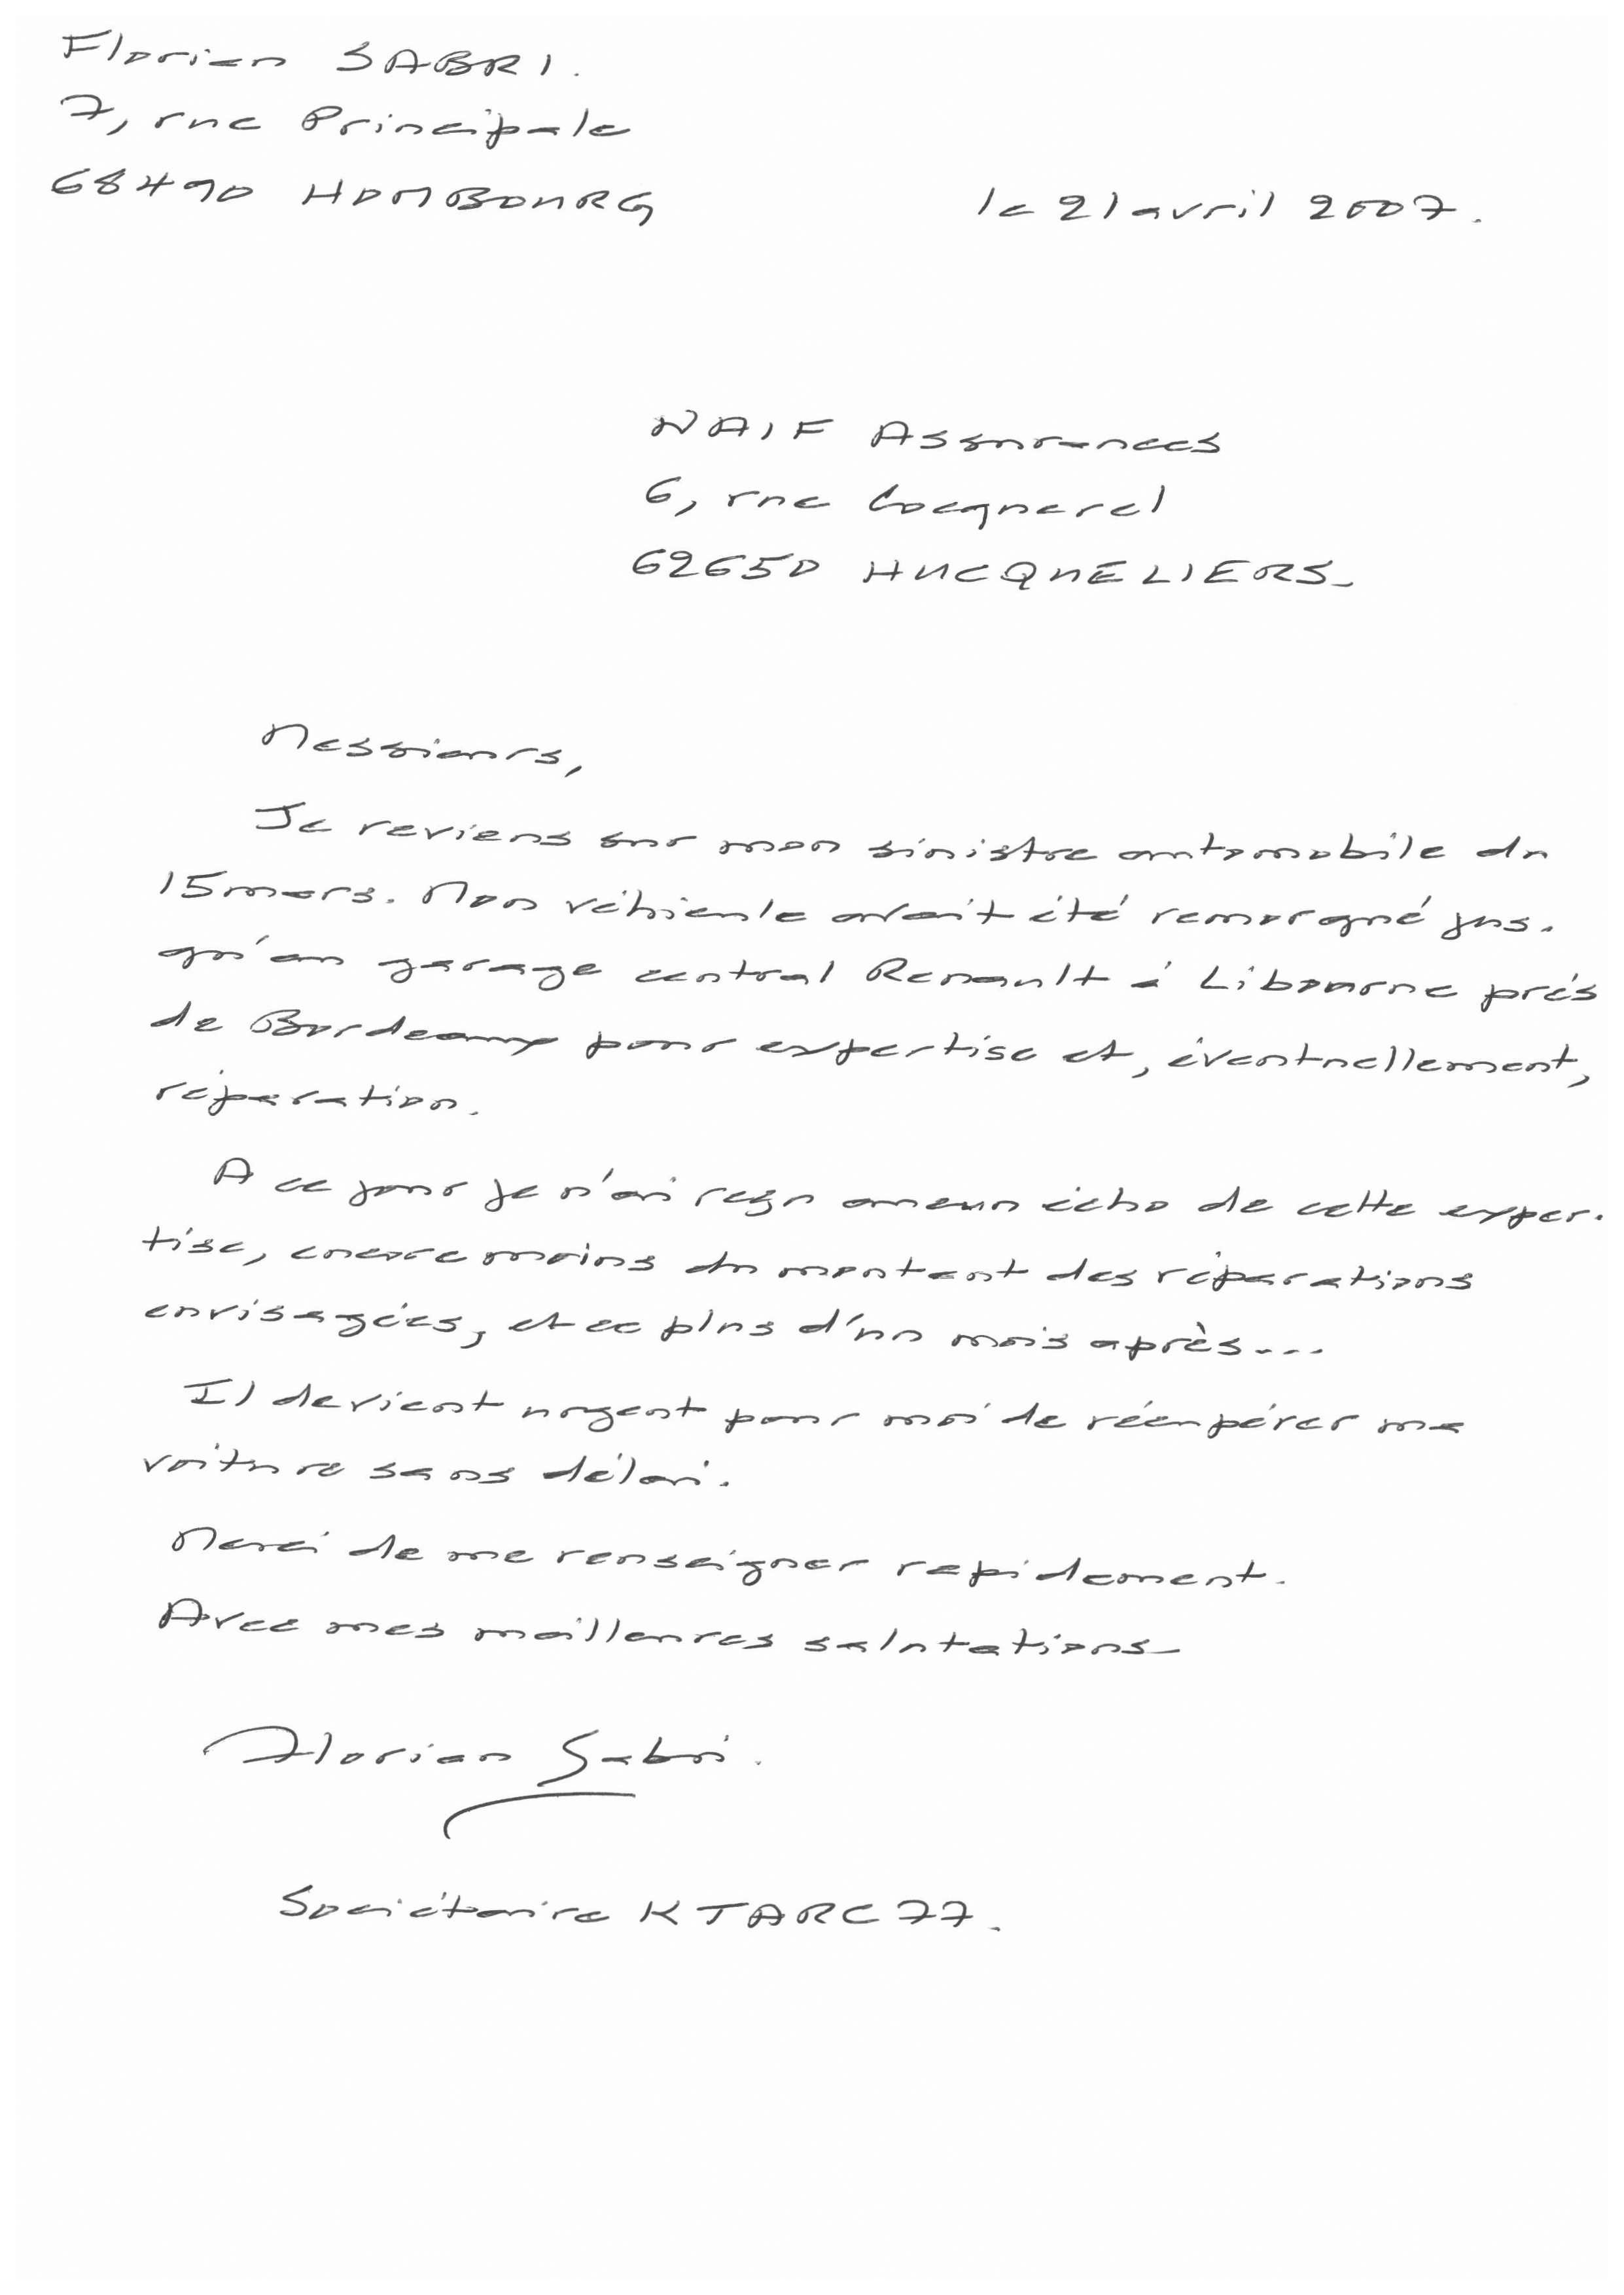 Florian SABRI.
7, rue Principale
68490 HOMBOURG
le 21 avril 2007.
NAIF Assurances
6, rue Cocquerel
62650 HUCQUELIERS_
Messieurs,
Je reviens sur mon sinistre automobile du
15 mars. Mon véhicule avait été remorqué jus-
qu'au garage central Renault à Libourne près
de Bordeaux pour expertise et, éventuellement,
réparation.
A ce jour je n'ai reçu aucun écho de cette exper-
tise, encore moins du montant des réparations
envisagées, et ce plus d'un mois après...
Il devient urgent pour moi de récupérer ma
voiture sans délai.
Merci de me renseigner rapidement.
Avec mes meilleures salutations_
Florian Sabri.
Sociétaire KTARC77.